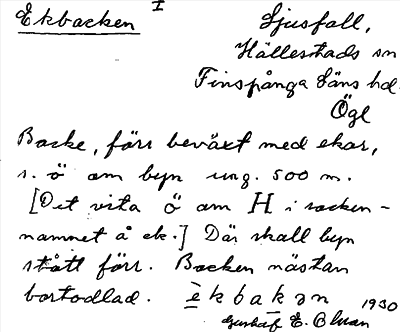 Ekbacken I
Ljusfall,
Hällestads sn
Finspånga läns hd.
Ögl
Backe, förr beväxt med ekar,
s. ö om byn ung. 500 m.
[Det vita ö om H i socken-
namnet å ek.] Där skall byn
stått förr. Backen nästan
bortodlad. èkbakən 1930
E. Olman